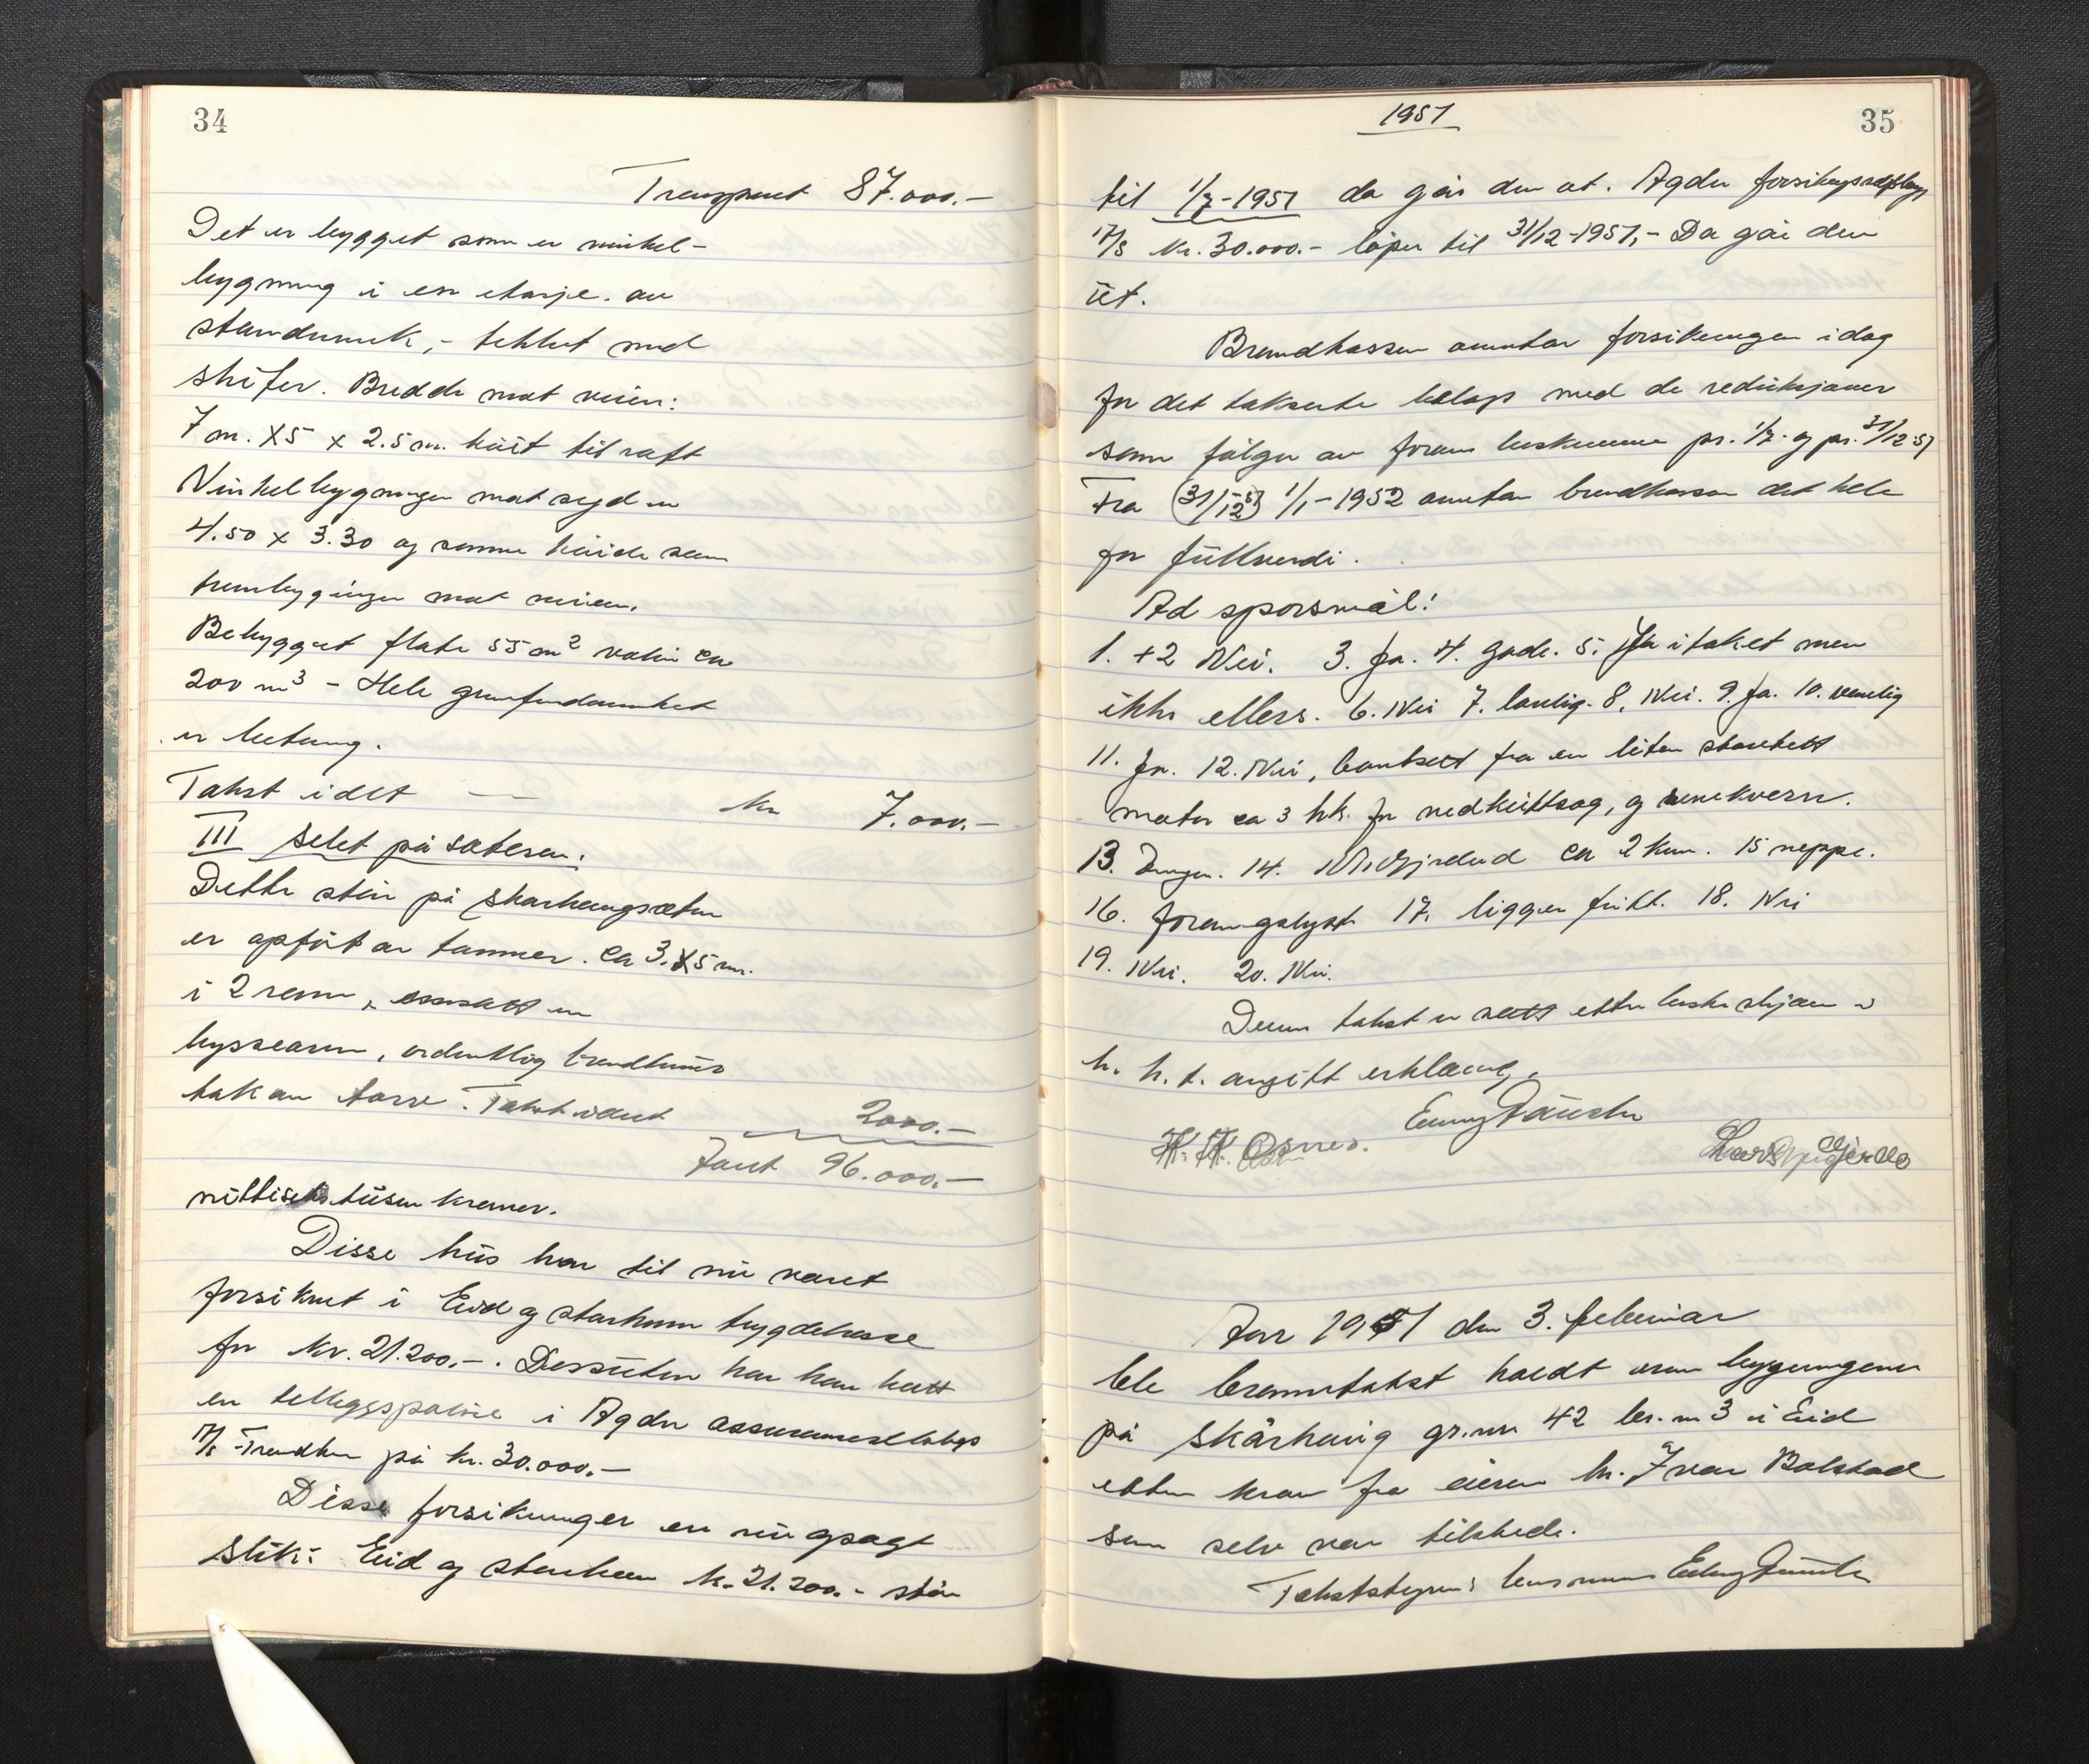 34
Transport 87.000.-
Det er bygget som er vinkel-
bygning i en etasje. av
standverk, - tekket med
skifer. Bredde mot veien:
7 m. x 5 x 2.5 m. høit til raft
Vinkelbygningen mot syd er
4.50 x 3.30 og samme høide som
mot veien.
Bebygget flate 55 m² volum ca
200 m³ - Hele
er betong.
Takst idet kr 7.000.-
III Selet på sæteren.
Dette står på Skarhaugsæter
er opført av tømmer. ca 3. x 5 m.
i 2 rom,
ordentlig brendhus
tak av torv. Takst idet 2000.-
Sum 96.000.-
nittiseks tusen kroner.
Disse hus har til nu været
forsikret i Eid og Starheim bygdekasse
for kr. 21.200.-. Dessuten har han hatt
en tilleggspolise i Agder
A/S Trondhm på kr. 30.000.-
Disse forsikringer er nu opsagt
slik: Eid og Starheim kr. 21.200.- står
1951
35
til 1/7-1951 da går den ut. Agder
A/S kr. 30.000.- løper til 31/12-1951,- Da går den
ut.
Brandkassen overtar forsikringen idag
for det takserte beløp med de reduksjoner
som følger av foran beskrevne pr. 1/7- og pr. 31/12-51
Fra (31/12-51) 1/1-1952 overtar brandkassen det hele
for fullverdi.
Ad spørsmål!
1. +2 Nei. 3. Ja. 4. gode. 5. Ja i taket men
ikke ellers. 6. Nei 7. lovlig. 8. Nei. 9. Ja. 10. vanlig
11. Ja. 12. Nei, bortsett fra en liten
motor ca 3 hk. for vedkuttsag, og
13. Ingen. 14. ca 2 km. 15 neppe.
16. 17. ligger fritt. 18. Nei
19. Nei. 20. Nei.
Denne takst er satt etter beste skjøn
h. h. t. avgitt erklæring.
H. H. Osnes.
Aar 1951 den 3. februar
ble branntakst holdt over bygningene
på Skårhaug gr.nr 42 br. nr 3 i Eid
etter krav fra eieren hr. Ivar Bolstad
som selv var tilstede.
Takststyrer: lensmann